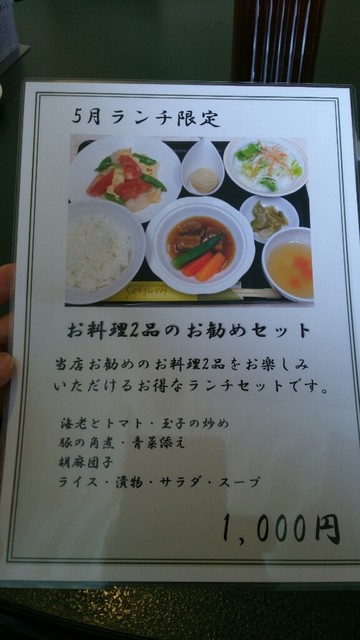 5月ランチ限定
お料理2品のお勧めセット
当店お勧めのお料理2品をお楽しみ
いただけるお得なランチセットです。
海老とトマト・玉子の炒め
豚の角煮・青菜添え
胡麻団子
ライス・漬物・サラダ・スープ
1,000円